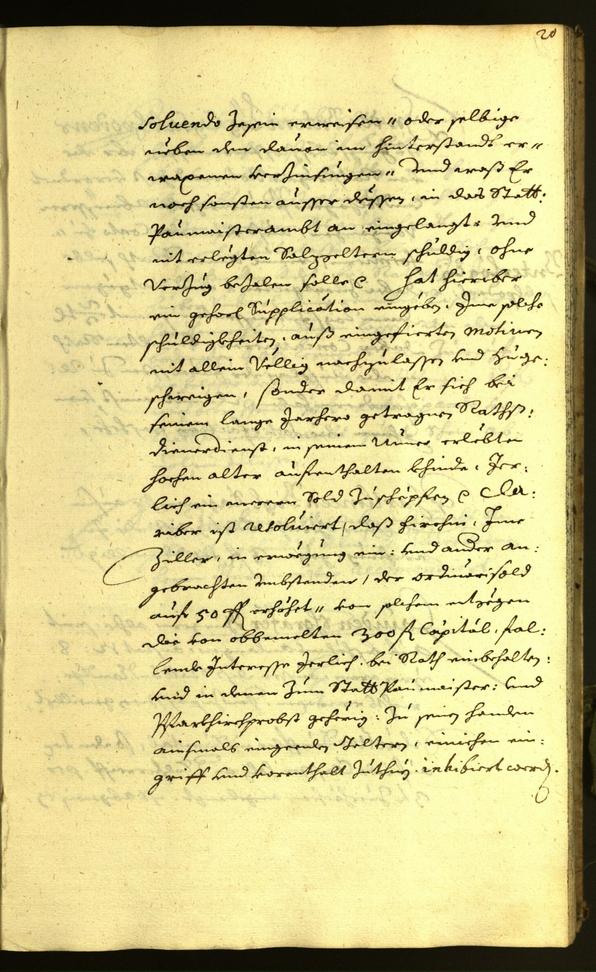 20
soluendo Zesein erweisen" oder selbige
neben den dauon im hinterstands er"
waxenen verzinsungen" Vnnd waß Er
noch sonsten ausser dessen, in das Statt:
Paumaisterambt an eingelangt: vnd
nit erlegten Salzgeltern schuldig, ohne
Verzug bezalen solle hat hieriber
ein gehors: Supplication eingeben, Ime solche
schuldigkheiten, auß eingefierten Motiuen
nit allein Vellig nachzulassen vnd zuge:
schweigen, sonder damit Er sich bei
seinem lange Jarhero getragnen Raths:
dienerdienst, in seinem nuner erlebten
hochen alter aufenthalten khinde, Jer:
lich ein merern Sold zuschepfen
riber ist Resoluiert, daß hirhin, Ime
Ziller, in erwegung ein: vnd ander an:
gebrachten vmbstenden, der ordinari sold
auf 50 fl erhöhet" von solchem entgegen
die von obbemelten 300 fl Capital, fal:
lende Interesse Jerlich, bei Rath einbehalten,
vnd in denen zum Statt Paumaister: vnd
Pfarkhirchprobst gehörig: zu seinen handen
aufmals eingeenden Geltern, einichen ein:
griff vnd vorenthalt zuthun, inhibiert werd.